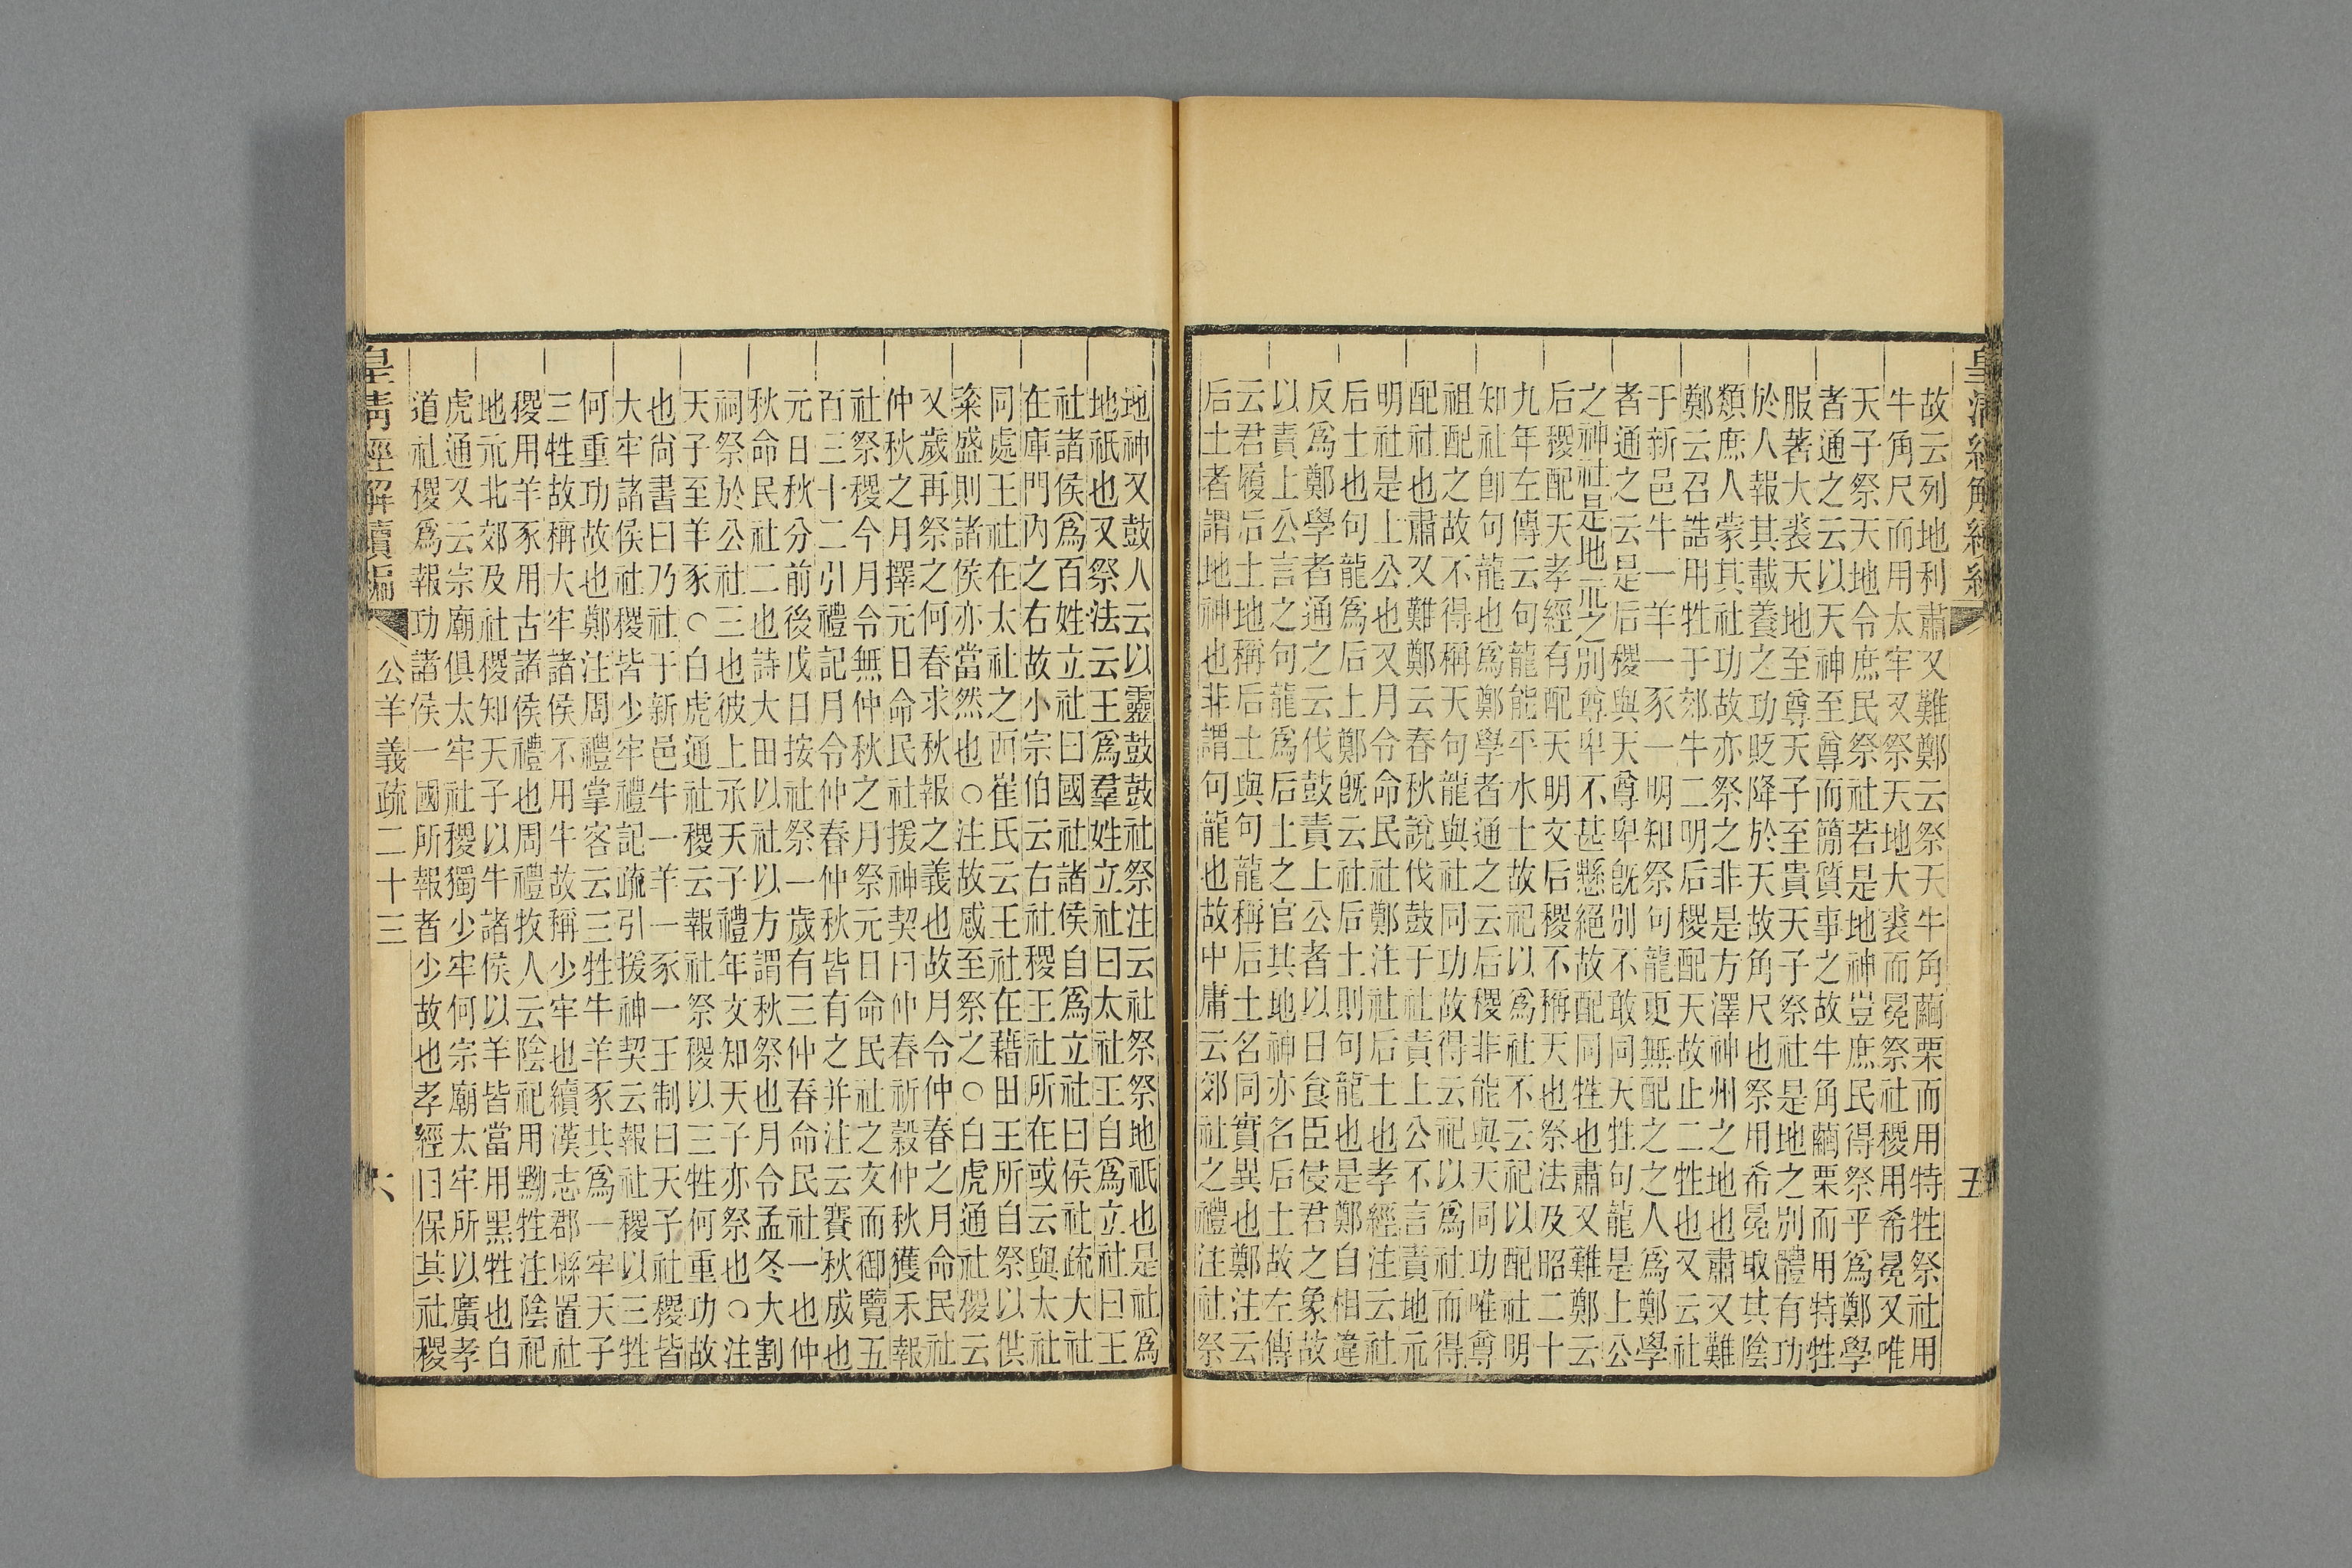 皇清經解續編
五
故云列地利肅又難鄭云祭天牛角繭栗而用特牲祭社用
牛角尺而用太牢又祭天地大裘而冕祭社稷用希冕又唯
天子祭天地令庶民祭社若是地神豈庶民得祭平爲鄭學
者通之云以天神至尊而簡質事之故牛角繭栗而用特牲
服著大裘天地至尊天子至貴天子祭社是地之別體有功
於人報其載養之功貶降於天故角尺也祭用希冕取其陰
類庶人蒙其社功故亦祭之非是方澤神州之地也肅又難
鄭云召誥用牲于郊牛二明后稷配天故止二牲也又云社
于新邑牛一羊一豕一明知祭句龍更無配之之人爲鄭學
者通之云是后稷與天尊卑旣別不敢同天牲句龍是上公
之神社是地元之別尊卑不甚懸絕故配同牲也肅又難鄭云
后稷配天孝經有配天明文后稷不稱天也祭法及昭二十
九年左傳云句龍能平水土故祀以爲社不云祀以配社明
知社卽句龍也爲鄭學者通之云后稷非能與天同功唯尊
祖配之故不得稱天句龍與社同功故得云祀以爲社而得
配社也肅又難鄭云春秋說伐鼓于社責上公不言責地元
明社是上公也又月令命民社鄭注社后土也孝經注云社
后土也句龍爲后土鄭旣云社后土則句龍也是鄭自相違
反爲鄭學者通之云伐鼓責上公者以日食臣侵君之象故
以責上公言之句龍爲后土之官其地神亦名后土故左傳
云君履后土地稱后土與句龍稱后土名同實異也鄭注云
后土者謂地神也非謂句龍也故中庸云郊社之禮注社祭
地神又鼓人云以靈鼓鼓社祭注云社祭祭地祇也是社爲
地祇也又祭法云王爲羣姓立社曰太社王自爲立社曰王
社諸侯爲百姓立社曰國社諸侯自爲立社曰侯社疏大社
在庫門內之右故小宗伯云右社稷王社所在或云與太社
同處王社在太社之西崔氏云王社在藉田王所自祭以供
粢盛則諸侯亦當然也○注故感至祭之○白虎通社稷云
又歲再祭之何春求秋報之義也故月令仲春之月命民社
仲秋之月擇元日命民社援神契曰仲春祈穀仲秋獲禾報
社祭稷今月令無仲秋之月祭元日命民社之文而御覽五
百三十二引禮記月令仲春仲秋皆有之并注云賽秋成也
元日秋分前後戊日按社祭一歲有三仲春命民社一也仲
秋命民社二也詩大田以社以方謂秋祭也月令孟冬大割
祠祭於公社三也彼上承天子禮年文知天子亦祭也○注
天子至羊豕○白虎通社稷云報社祭稷以三牲何重功故
也尚書曰乃社于新邑牛一羊一豕一王制曰天子社稷皆
大牢諸侯社稷皆少牢禮記疏引援神契云報社稷以三牲
何重功故也鄭注周禮掌客云三牲牛羊豕共爲一牢天子
三牲故稱大牢諸侯不用牛故稱少牢也續漢志郡縣置社
稷用羊豕用古諸侯禮也周禮牧人云陰祀用黝牲注陰祀
地元北郊及社稷知天子以牛諸侯以羊皆當用黑牲也白
虎通又云宗廟俱太牢社稷獨少牢何宗廟太牢所以廣孝
道社稷爲報功諸侯一國所報者少故也孝經曰保其社稷
皇清經解續編
公羊義疏二十三
六